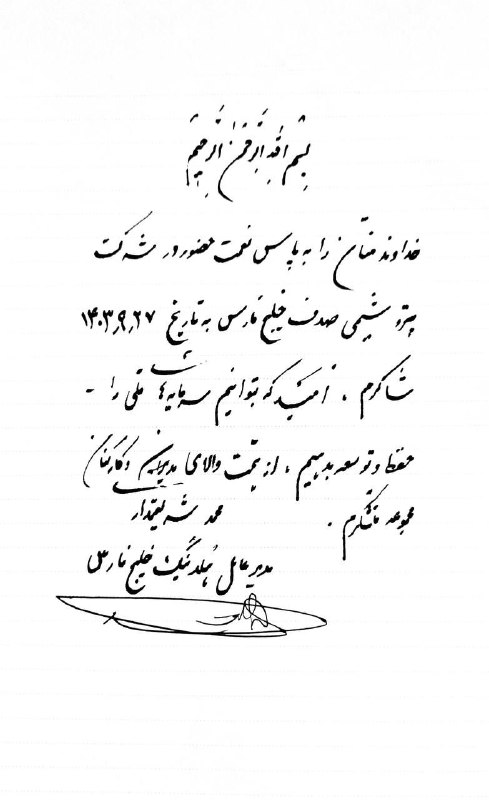 بسم الله الرحمن الرحیم
خداوند منان را به پاس نعمت حضور در شرکت
پتروشیمی صدف خلیج فارس به تاریخ ۱۴۰۳٫۹٫۲۷
شاکرم . امید که بتوانیم سرمایه‌های ملی را -
حفظ و توسعه بدهیم ، از همت والای مدیران و کارکنان
مجموعه متشکرم .
محمد شریعتمدار
مدیر عامل هلدینگ خلیج فارس